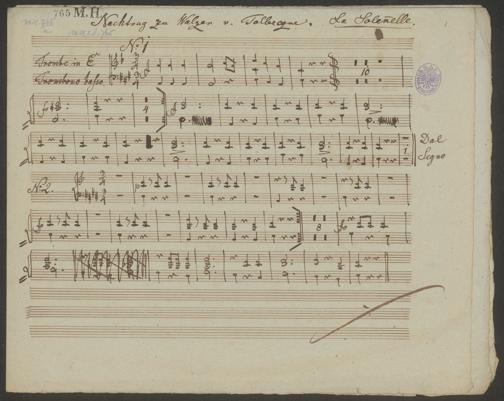 765 M.H.
Nachtrag zu Walzer v. Tolbecque. La
No 1
Trombe in E
Trombono basso
4
10
Dal
Segno
1
No 2.
8